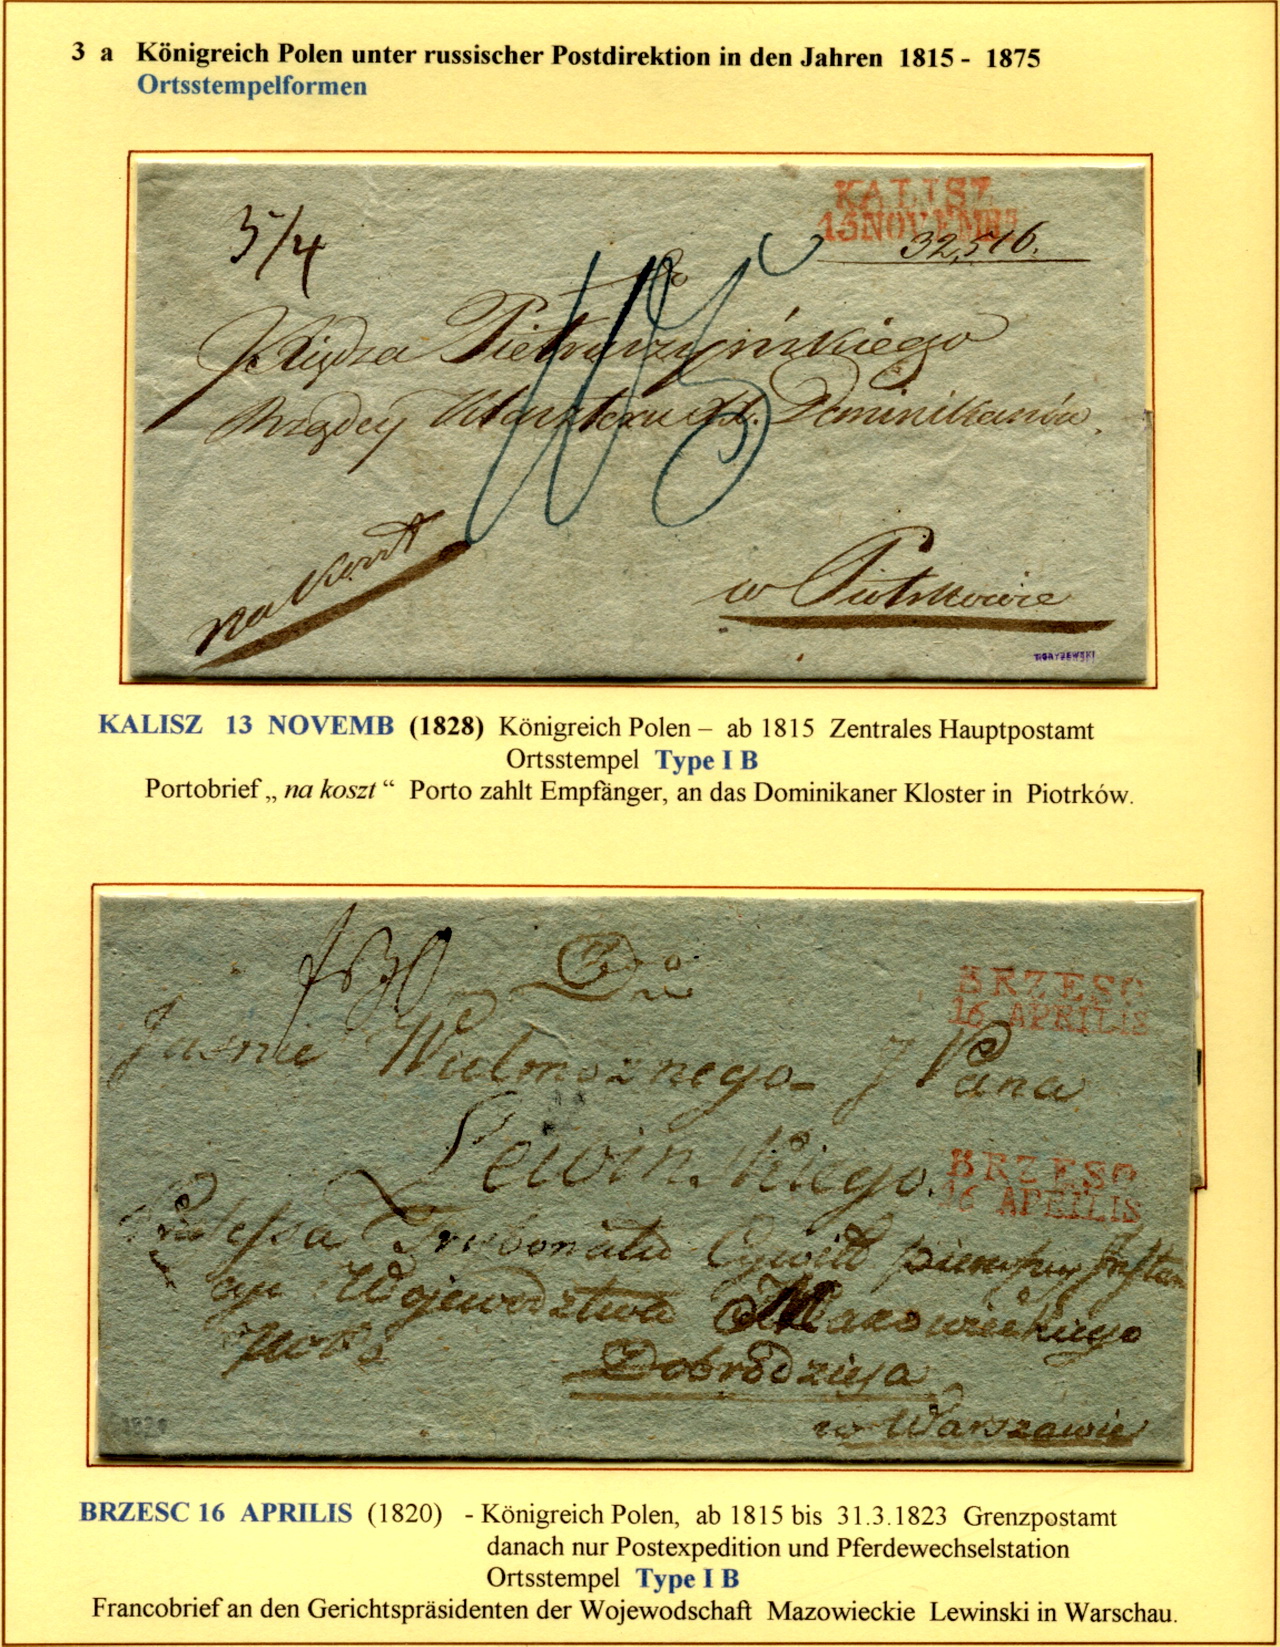 3 a Königreich Polen unter russischer Postdirektion in den Jahren 1815 - 1875
Ortsstempelformen
KALISZ
13 NOVEMB
3/4
32,516.
Do
Xiędza Pietruszyńskiego
Rządcy Klasztoru XX. Dominikanów.
na koszt
w Piotrkowie
KALISZ 13 NOVEMB (1828) Königreich Polen – ab 1815 Zentrales Hauptpostamt
Ortsstempel Type I B
Portobrief „ na koszt “ Porto zahlt Empfänger, an das Dominikaner Kloster in Piotrków.
BRZESC
16 APRILIS
Jaśnie Wielmożnego J Pana
Lewinskiego.
BRZESC
16 APRILIS
Trybonału Cywill
Wojewodztwa Mazowieckiego
Dobrodzieja
w Warszawie
BRZESC 16 APRILIS (1820) - Königreich Polen, ab 1815 bis 31.3.1823 Grenzpostamt
danach nur Postexpedition und Pferdewechselstation
Ortsstempel Type I B
Francobrief an den Gerichtspräsidenten der Wojewodschaft Mazowieckie Lewinski in Warschau.